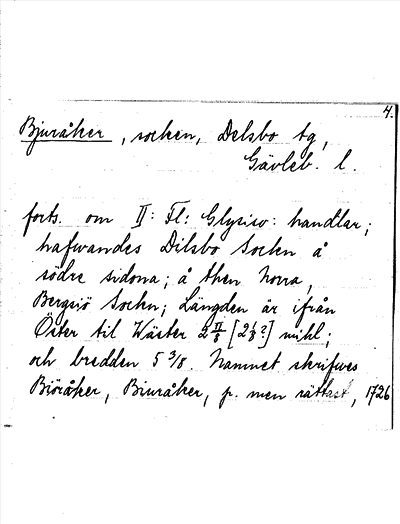 4.
Bjuråker, socken, Delsbo tg,
Gävleb. l.
forts. om II: Fl: Glysisv: handlar;
hafwandes Dilsbo Sockn å
södre sidona; å then Norra,
Bergsiö Sockn; Längden är ifrån
Öster til Wäster 2 [2 ?] mihl;
och bredden 5 3/8. Namnet skrifwes
Biöråker, Biuråker, p. men rättast, 1726